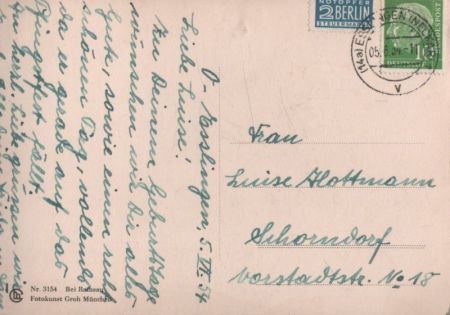 NOTOPFER
2 BERLIN
STEUERMARKE
(14a) ESSLINGEN
05.6.54
V
10
DEUTSCHE BUNDESPOST
O-Esslingen, 5. VI. 54
Liebe Luise!
Zu Deinem Geburtstage
wünschen wir Dir alles
Gute, sowie einen recht
schönen Tag, vollends
da er grad auf das
Pfingstfest fällt.
grüssen wir
Frau
Luise Hottmann
Schorndorf
Vorstadtstr. No 18
Nr. 3154 Bei Ramsau
Fotokunst Groh München